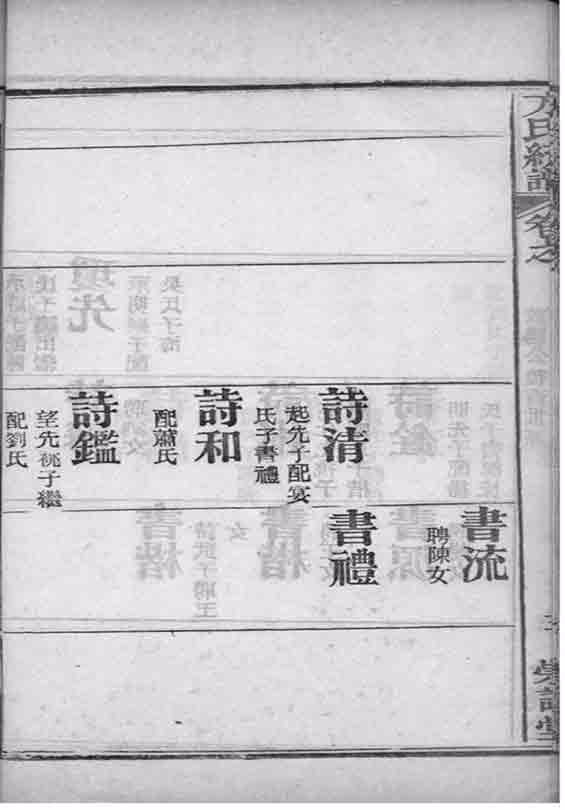 方氏統譜
卷之
書流
聘陳女
詩清
起先子配宴
氏子書禮
書禮
詩和
配蕭氏
詩鑑
望先祧子繼
配劉氏